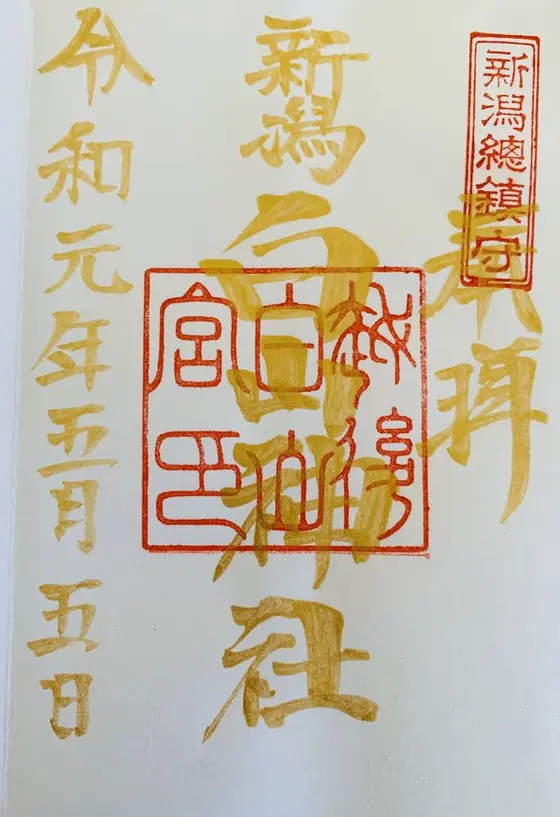 新潟總鎮守
奉拝
新潟白山神社
越後
白山
宮印
令和元年五月五日